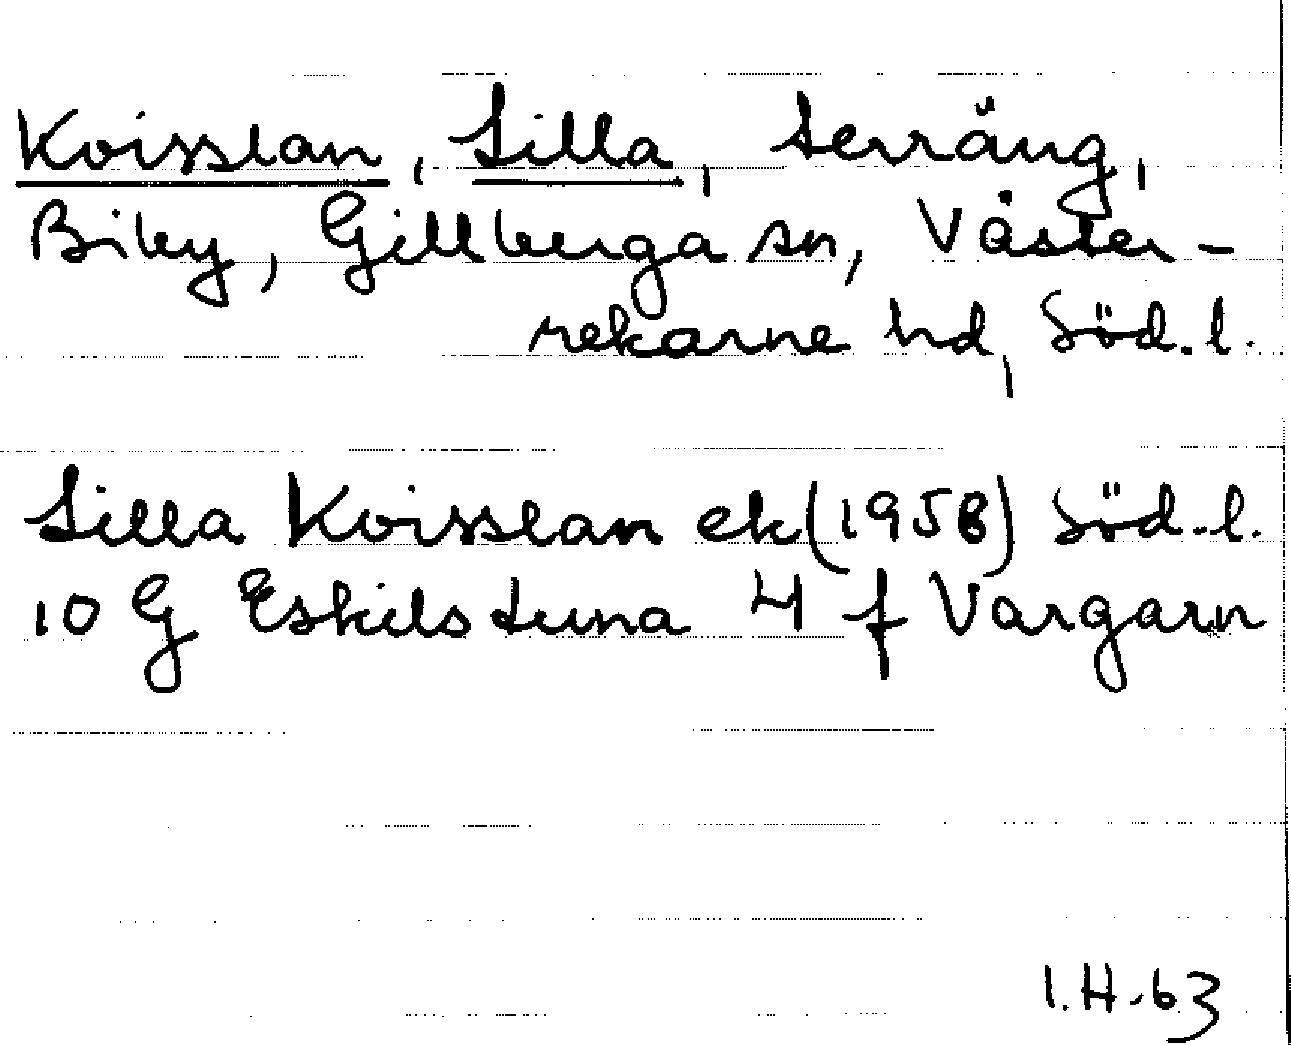 Kvisslan, Lilla, terräng,
Biby, Gillberga sn, Väster-
rekarne hd, Söd.l.
Lilla Kvisslan ek (1958) Söd.l.
10 G Eskilstuna 4 f Vargarn
I.H.-63